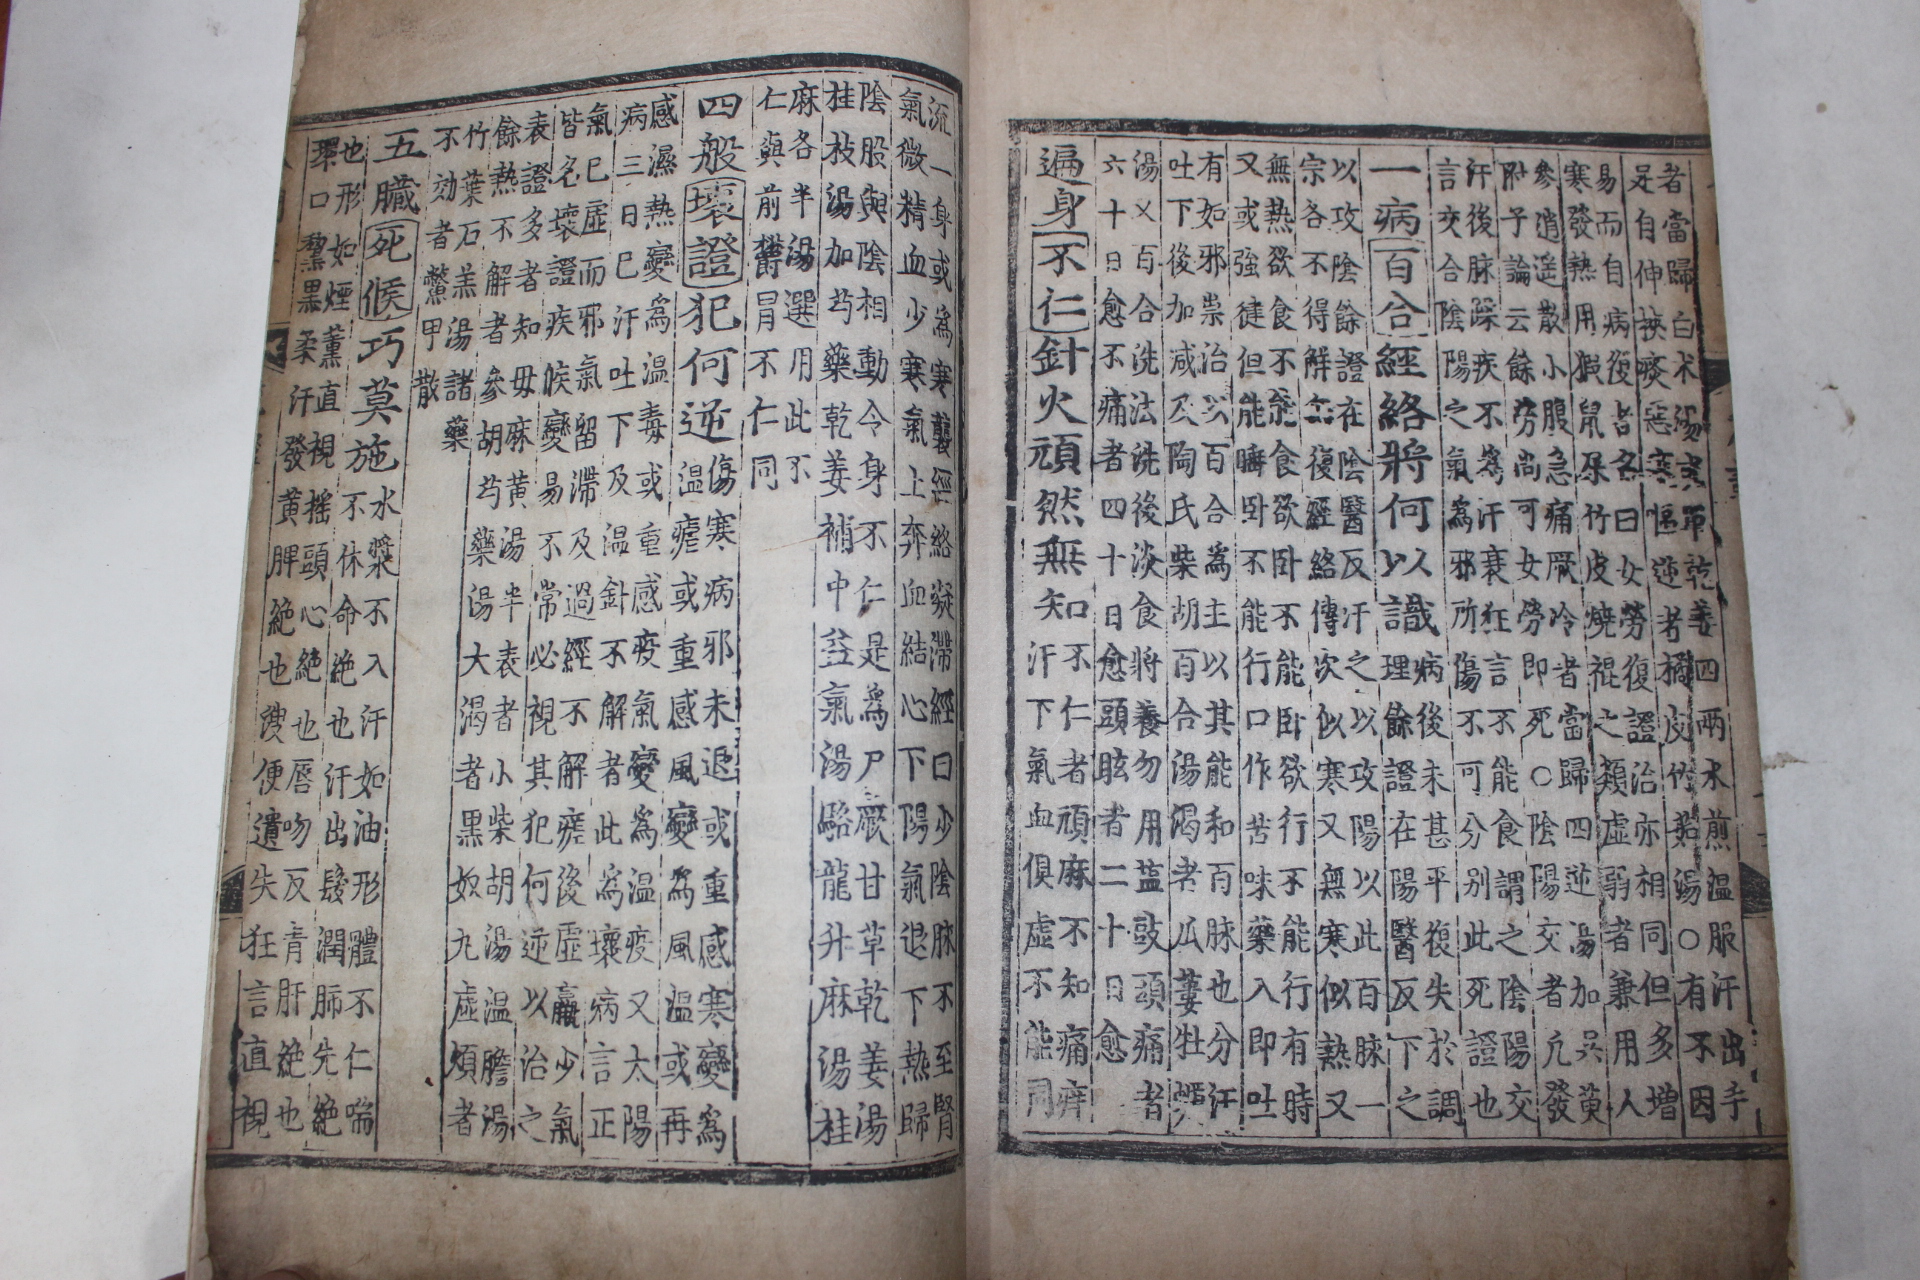 者當歸白术湯
乾姜四兩水煎温服汗出手
足自伸挾痰惡寒嘔逆者橘皮竹茹湯○有不因
易而自病復皆名曰女勞復證治亦相同但多增
寒發熱用猳鼠屎竹皮燒裩之類虛弱者兼用人
參逍遙散小腹急痛厥冷者當歸四逆湯加吳茰
附子論云餘勞尚可女勞即死○陰陽交者凢發
汗後脉躁疾不為汗衰狂言不能食謂之陰陽交
言交合陰陽之氣為邪所傷不可分別此死證也
一病百合經絡將何以識
病後未甚平復失於調
理餘證在陽醫反下之
以攻陰餘證在陰醫反汗之以攻陽以此百脉一
宗各不得解亦復經絡傳次似寒又無寒似熱又
無熱欲食不能食欲卧不能卧欲行不能行有時
又或強徤但能睡卧不能行口作苦味藥入即吐
有如邪祟治以百合為主以其能和百脉也分汗
吐下後加减及陶氏柴胡百合湯渴者瓜蔞牡蠣
湯又百合洗法洗後淡食將養勿用盬豉頭痛者
六十日愈不痛者四十日愈頭眩者二十日愈
遍身不仁針火頑然無知
不仁者頑麻不知痛痒
汗下氣血俱虛不能同
流一身或為寒襲經絡凝滯經曰少陰脉不至腎
氣微精血少寒氣上奔血結心下陽氣退下熱歸
陰股與陰相動令身不仁是為尸厥甘草乾姜湯
桂枝湯加芍藥乾姜補中益氣湯驅龍升麻湯桂
麻各半湯選用此不
仁與前欝冒不仁同
四般壞證犯何逆
傷寒病邪未退或重感寒變為
温瘧或重感風變為風温或再
感濕熱變為温毒或重感疫氣變為温疫又太陽
病三日已汗吐下及温針不解者此為壞病言正
氣已虛而邪氣留滯及過經不解瘥後虛羸少氣
皆名壞證疾候變易不常必視其犯何逆以治之
表證多者知毋麻黃湯半表者小柴胡湯温膽湯
餘熱不解者參胡芍藥湯大渴者黑奴丸虛煩者
竹葉石羔湯諸藥
不効者鱉甲散
五臓死候巧莫施
水漿不入汗如油形體不仁喘
不休命絶也汗出髮潤肺先絶
也形如煙薰直視揺頭心絶也唇吻反青肝絶也
環口黎黒柔汗發黄脾絶也溲便遺失狂言直視